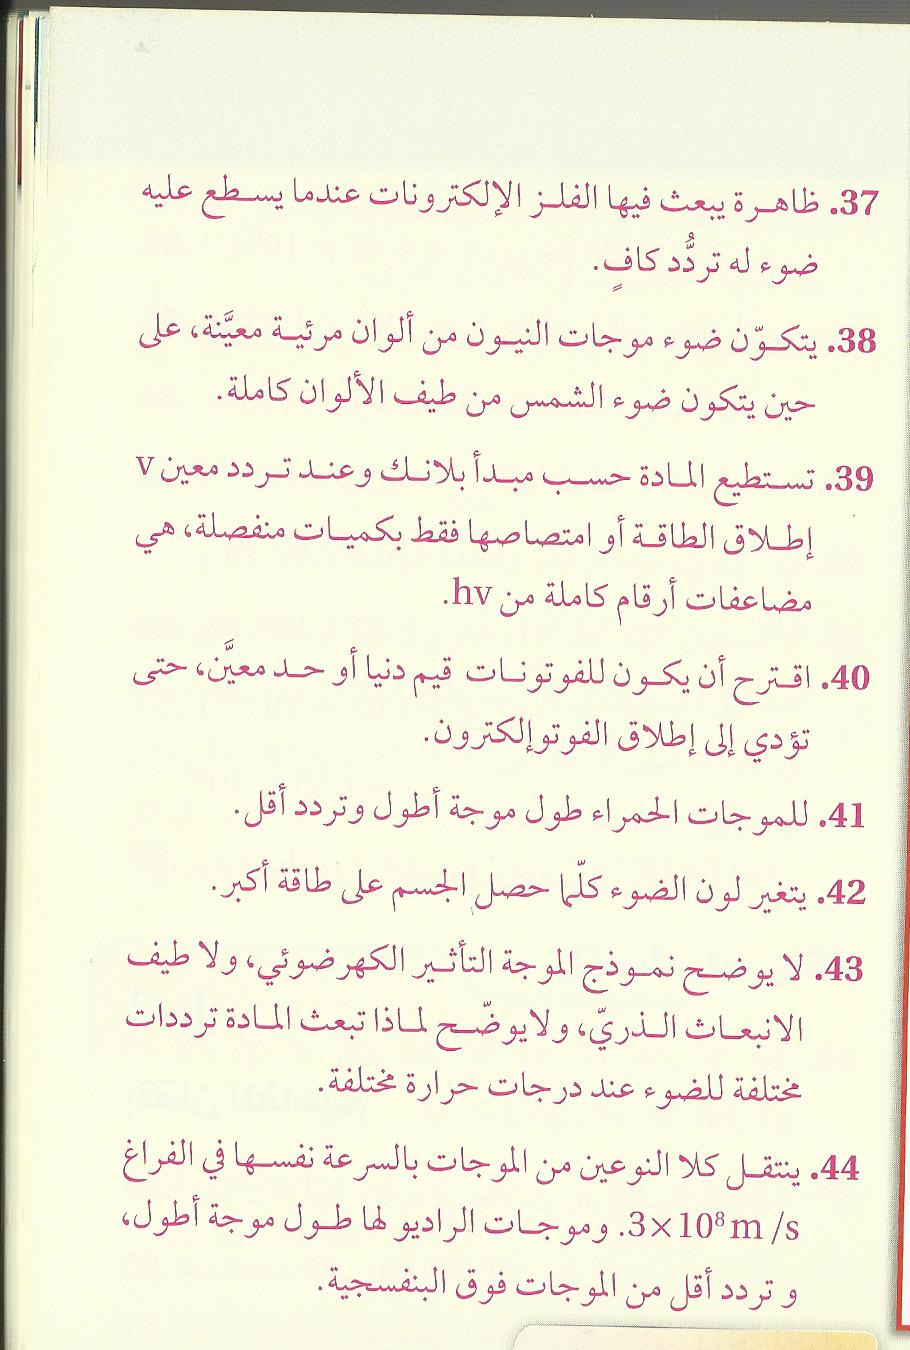 37. ظاهرة يبعث فيها الفلز الإلكترونات عندما يسطع عليه
ضوء له تردُّد كافٍ.
38. يتكوّن ضوء موجات النيون من ألوان مرئية معيَّنة، على
حين يتكون ضوء الشمس من طيف الألوان كاملة.
39. تستطيع المادة حسب مبدأ بلانك وعند تردد معين v
إطلاق الطاقة أو امتصاصها فقط بكميات منفصلة، هي
مضاعفات أرقام كاملة من hv.
40. اقترح أن يكون للفوتونات قيم دنيا أو حد معيَّن، حتى
تؤدي إلى إطلاق الفوتوإلكترون.
41. للموجات الحمراء طول موجة أطول وتردد أقل.
42. يتغير لون الضوء كلّما حصل الجسم على طاقة أكبر.
43. لا يوضح نموذج الموجة التأثير الكهرضوئي، ولا طيف
الانبعاث الذريّ، ولايوضّح لماذا تبعث المادة ترددات
مختلفة للضوء عند درجات حرارة مختلفة.
44. ينتقل كلا النوعين من الموجات بالسرعة نفسها في الفراغ
3×10⁸ m/s. وموجات الراديو لها طول موجة أطول،
و تردد أقل من الموجات فوق البنفسجية.